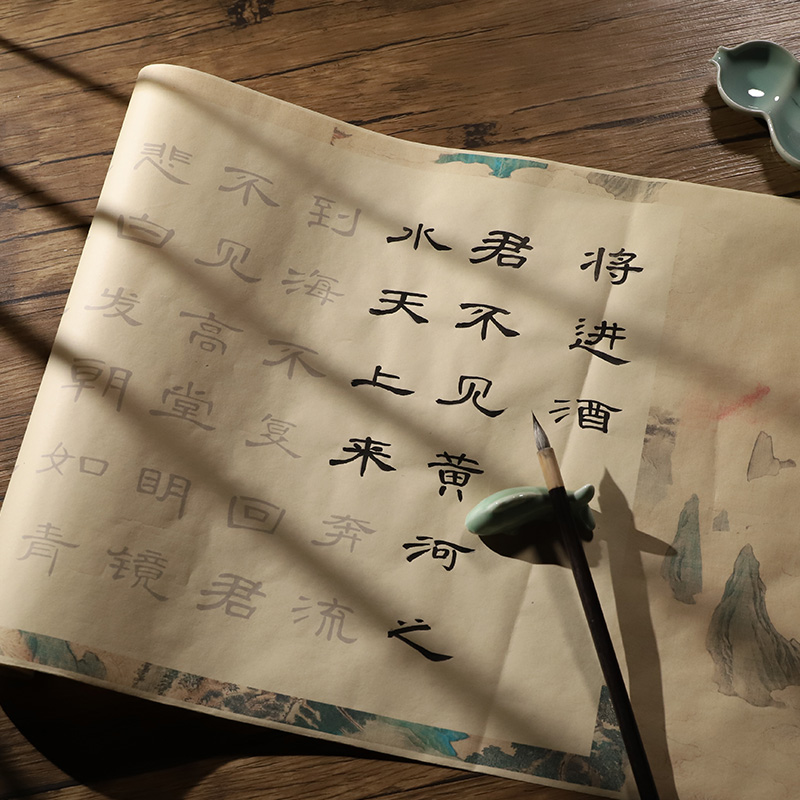 将进酒
君不见黄河之
水天上来奔流
到海不复回君
不见高堂明镜
悲白发朝如青